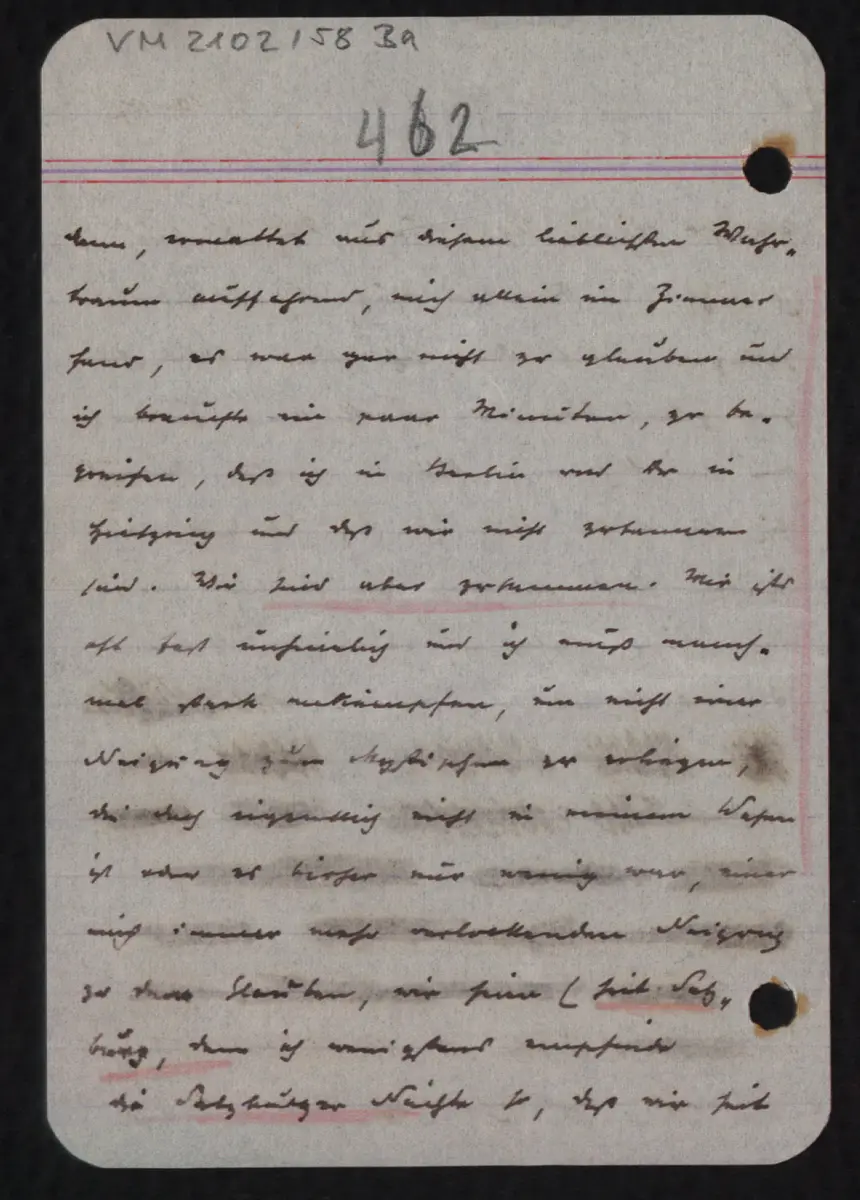 VM 2102/58 Ba
462
dann, ermattet aus diesem lieblichsten Wahr„
traum auffahrend, mich allein im Zimmer
fand, es war gar nicht zu glauben und
ich brauchte ein paar Minuten, zu be-
greifen, daß ich in Berlin und Du in
und daß wir nicht zusammen
sind. Wir sind aber zusammen. Mir ists
oft fast unheimlich und ich muß manch-
mal stark ankämpfen, um nicht einer
Neigung zum Mystischen zu erliegen,
die doch eigentlich nicht in meinem Wesen
ist oder es bisher nur wenig war, einer
mich immer mehr verlockenden Neigung
zu dem Glauben, wir seien (seit Salz„
burg, denn ich wenigstens empfinde
die Salzburger Nächte so, daß wir seit